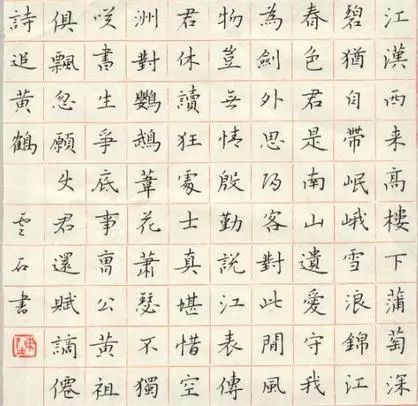 江漢西来高樓下蒲萄深
碧猶自帶岷峨雪浪錦江
春色君是南山遺愛守我
為劍外思歸客對此間風
物豈無情殷勤說江表傳
君休讀狂處士真堪惜空
洲對鸚鵡葦花蕭瑟不獨
咲書生爭底事曹公黃祖
俱飄忽願使君還賦謫僊
詩追黃鶴
雲石書